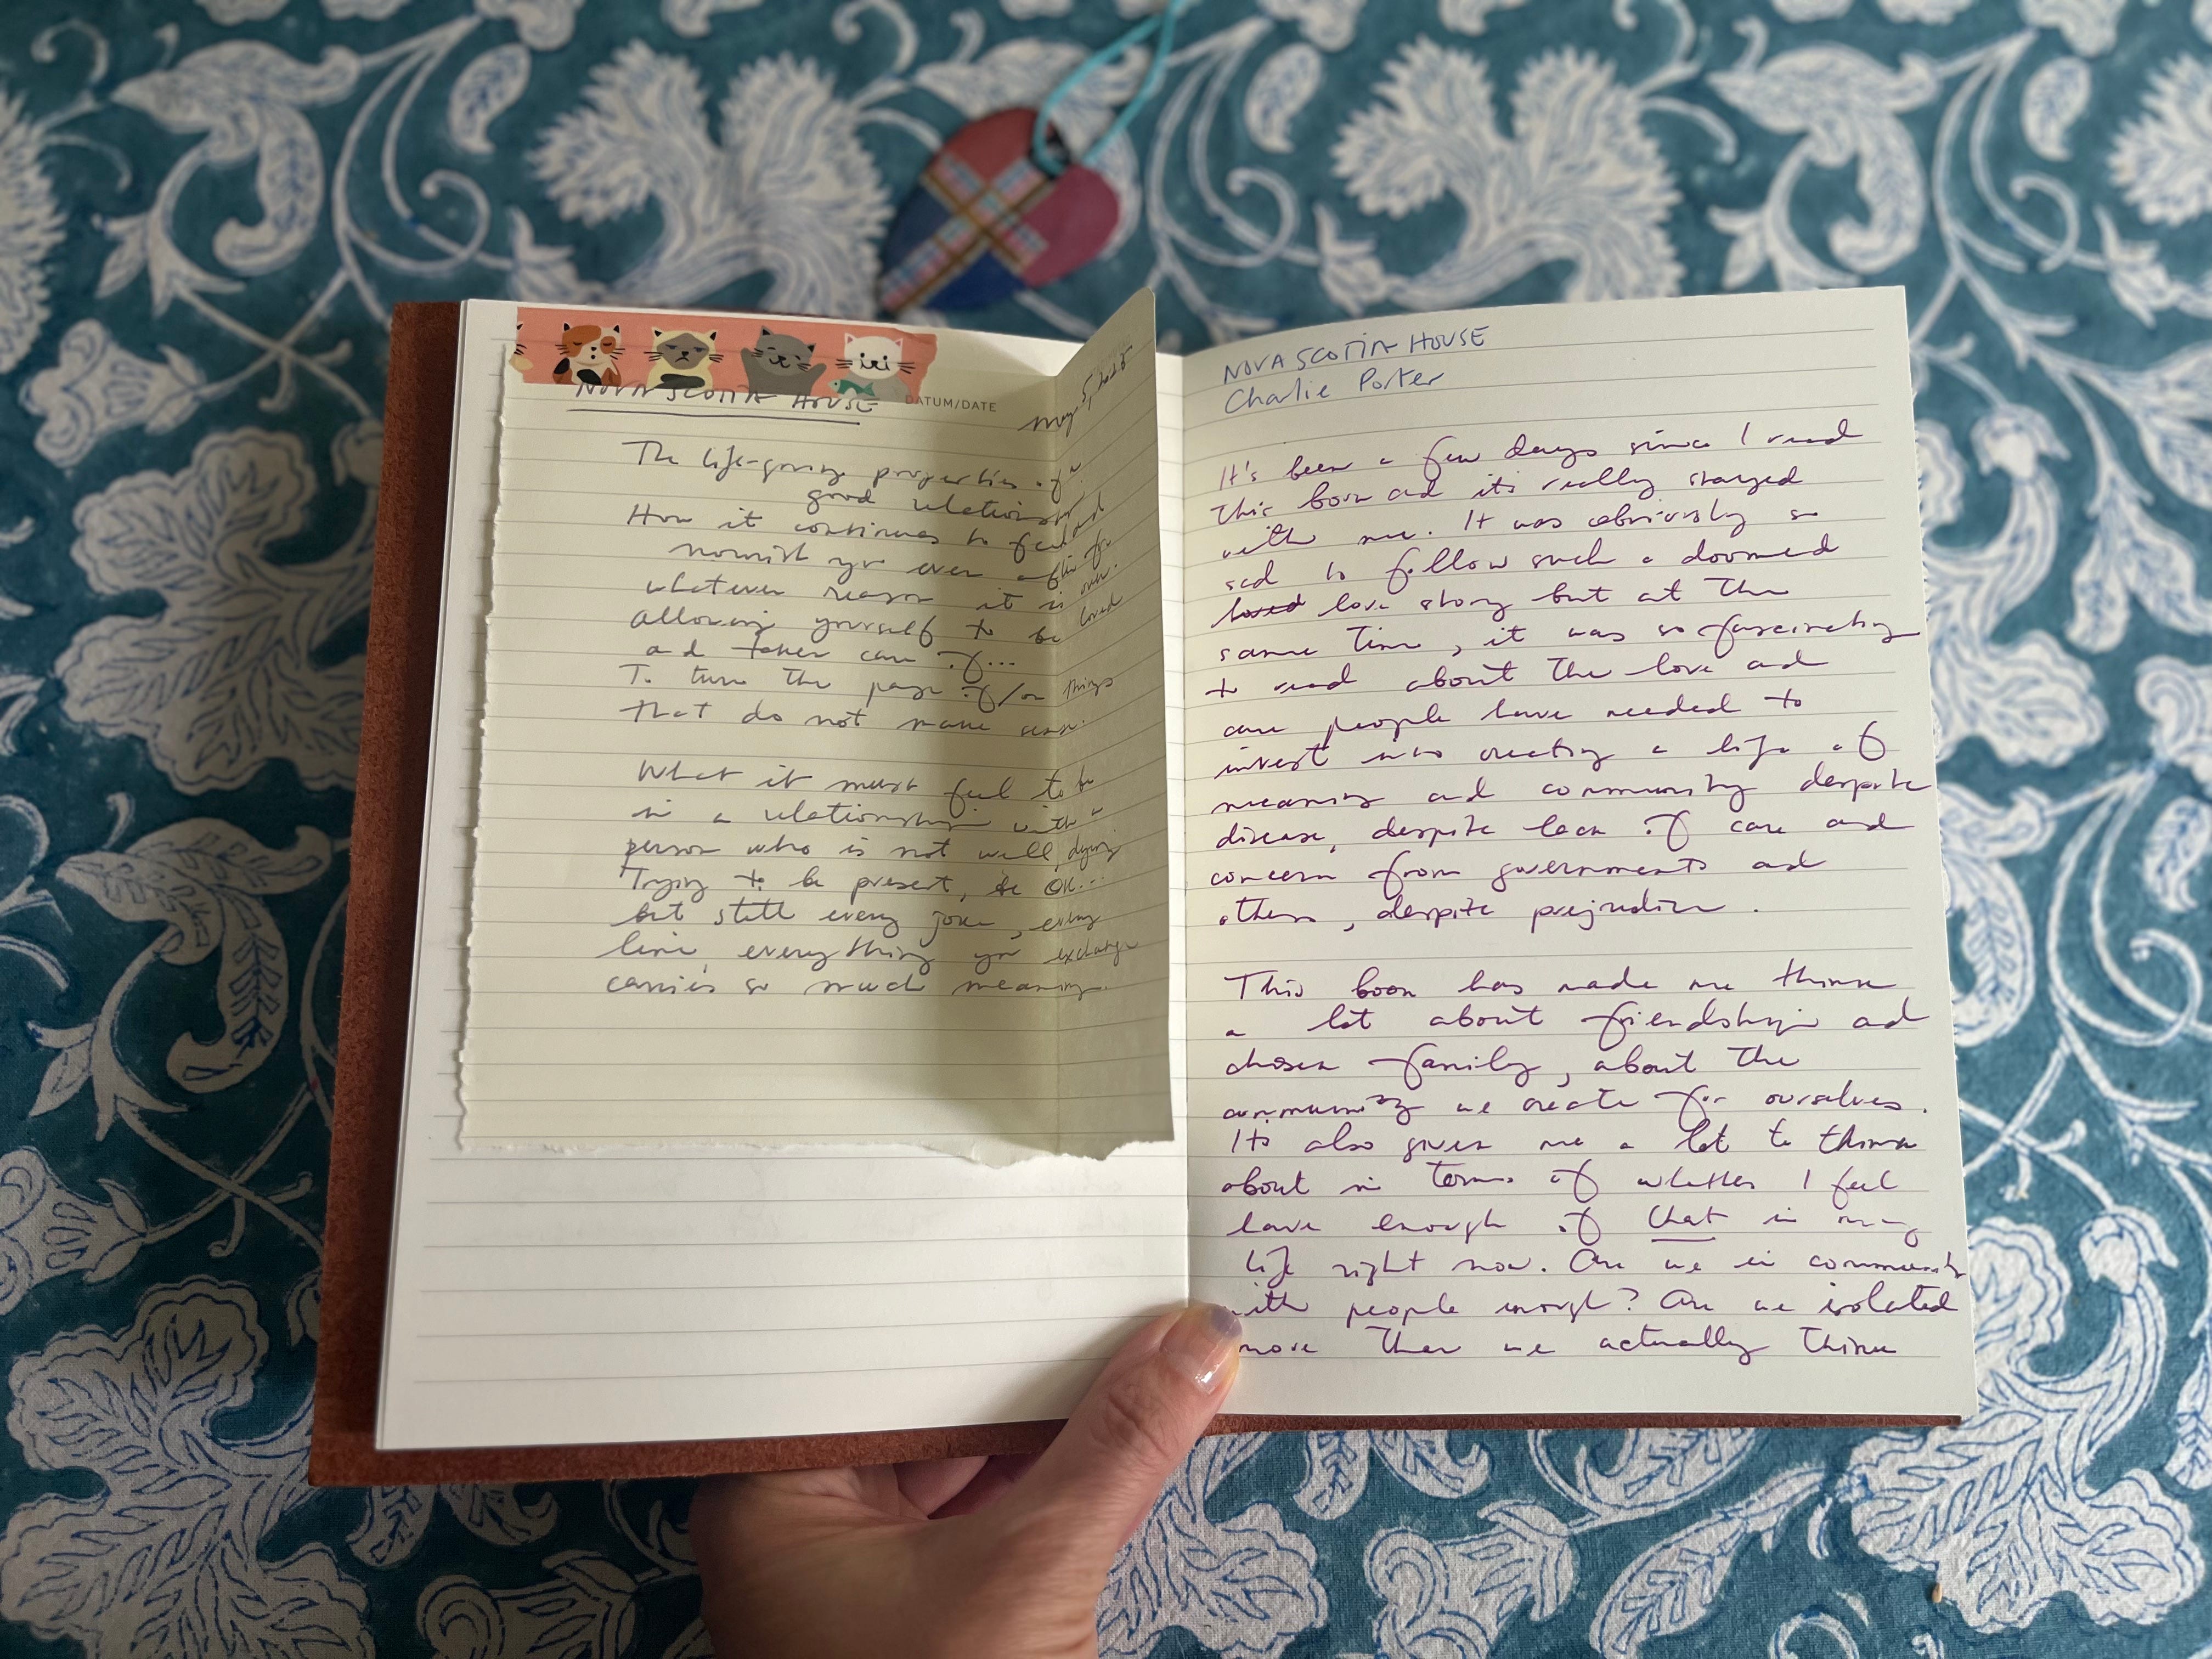 NOVA SCOTIA HOUSE
DATUM/DATE
May 5, 2025
The life-giving properties of a
good relationship
How it continues to feed and
nourish you even after for
whatever reason it is over.
Allowing yourself to be loved
and taken care of...
To turn the page of/on things
that do not make sense.
What it must feel to be
in a relationship with a
person who is not well, dying
Trying to be present, be OK...
but still every joke, every
line, everything you exchange
carries so much meaning.
NOVA SCOTIA HOUSE
Charlie Porter
It's been a few days since I read
this book and it's really stayed
with me. It was obviously so
sad to follow such a doomed
loved love story but at the
same time, it was so fascinating
to read about the love and
care people have needed to
invest into creating a life of
meaning and community despite
disease, despite lack of care and
concern from governments and
others, despite prejudice.
This book has made me think
a lot about friendship and
chosen family, about the
community we create for ourselves.
It's also given me a lot to think
about in terms of whether I feel
have enough of that in my
life right now. Are we in community
with people enough? Are we isolated
more than we actually think